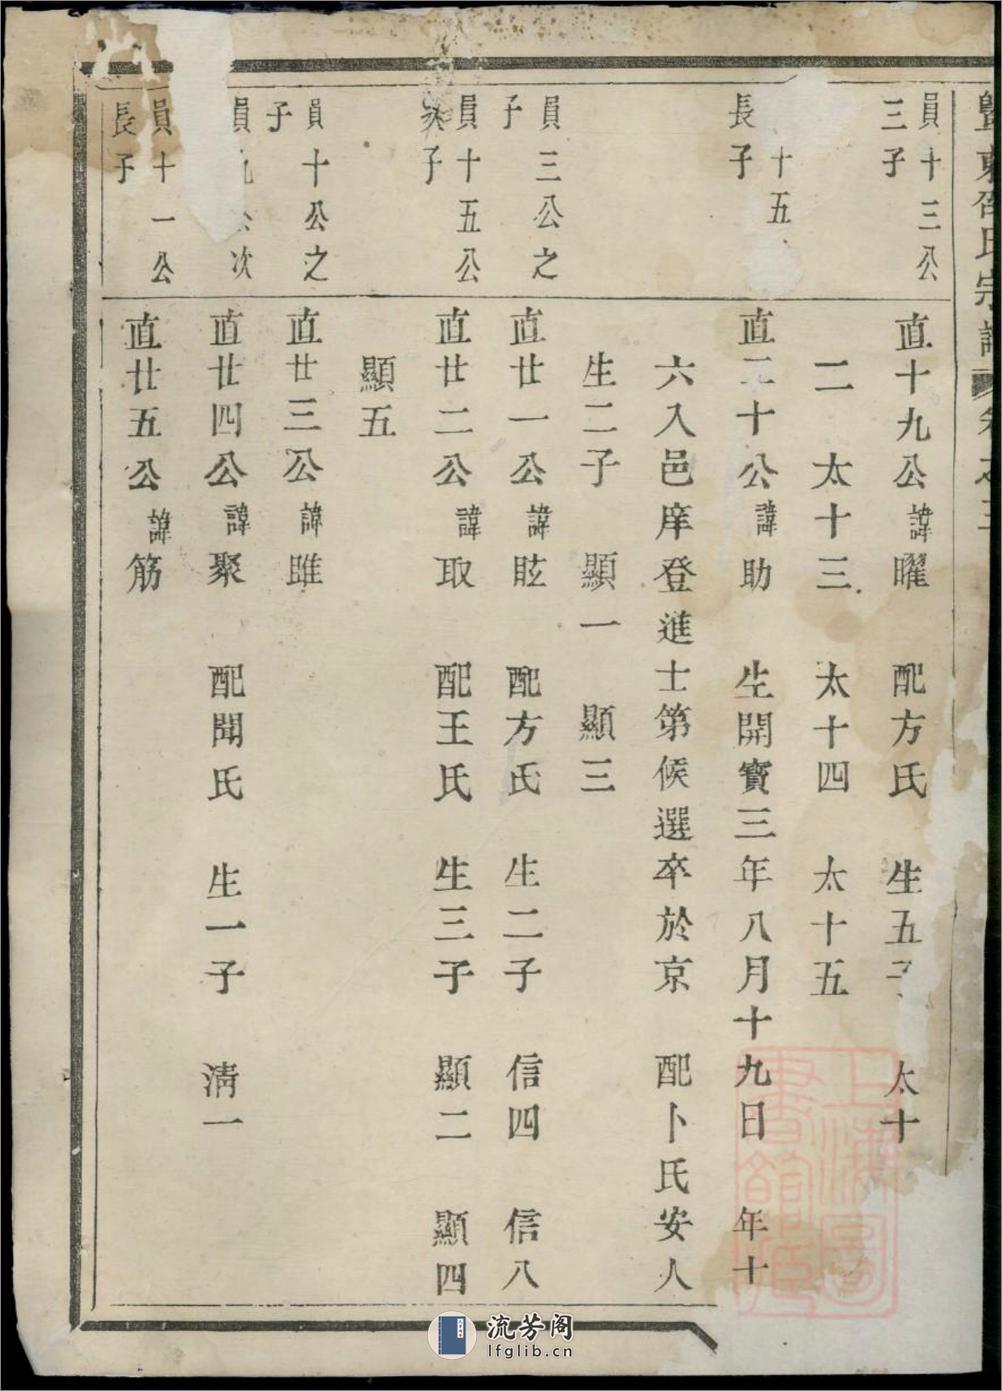 暨東邵氏宗譜 卷之三
員十三公
三子
直十九公諱曜 配方氏 生五子 太十
二 太十三 太十四 太十五
十五
長子
直二十公諱助 生開寶三年八月十九日 年十
六入邑庠登進士第候選卒於京 配卜氏安人
生二子 顯一 顯三
員三公之
子
直廿一公諱眩 配方氏 生二子 信四 信八
員十五公
次子
直廿二公諱取 配王氏 生三子 顯二 顯四
顯五
員十公之
子
直廿三公諱雎
員九公次
直廿四公諱聚 配聞氏 生一子 清一
員十一公
長子
直廿五公諱筋
上海圖書館藏
流芳阁
lfglib.cn